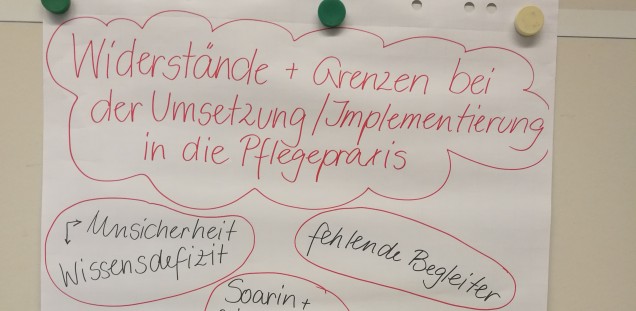 Widerstände + Grenzen bei
der Umsetzung/Implementierung
in die Pflegepraxis
Unsicherheit
Wissensdefizit
fehlende Begleiter
Soarin +